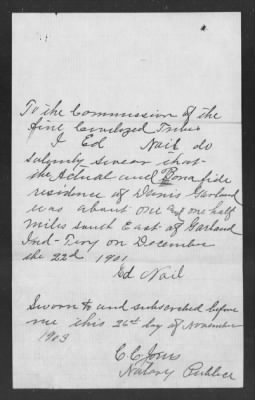 To the Commission of the
five Civilized Tribes
I Ed Nail do
solemnly swear that
the Actual and Bonafide
residence of Davis Garland
was about one and one half
miles south East of Garland
Ind-Tery on December
the 22d 1901
Ed Nail
Sworn to and subscribed before
me this 26th day of November
1903
C C Jones
Notary Public